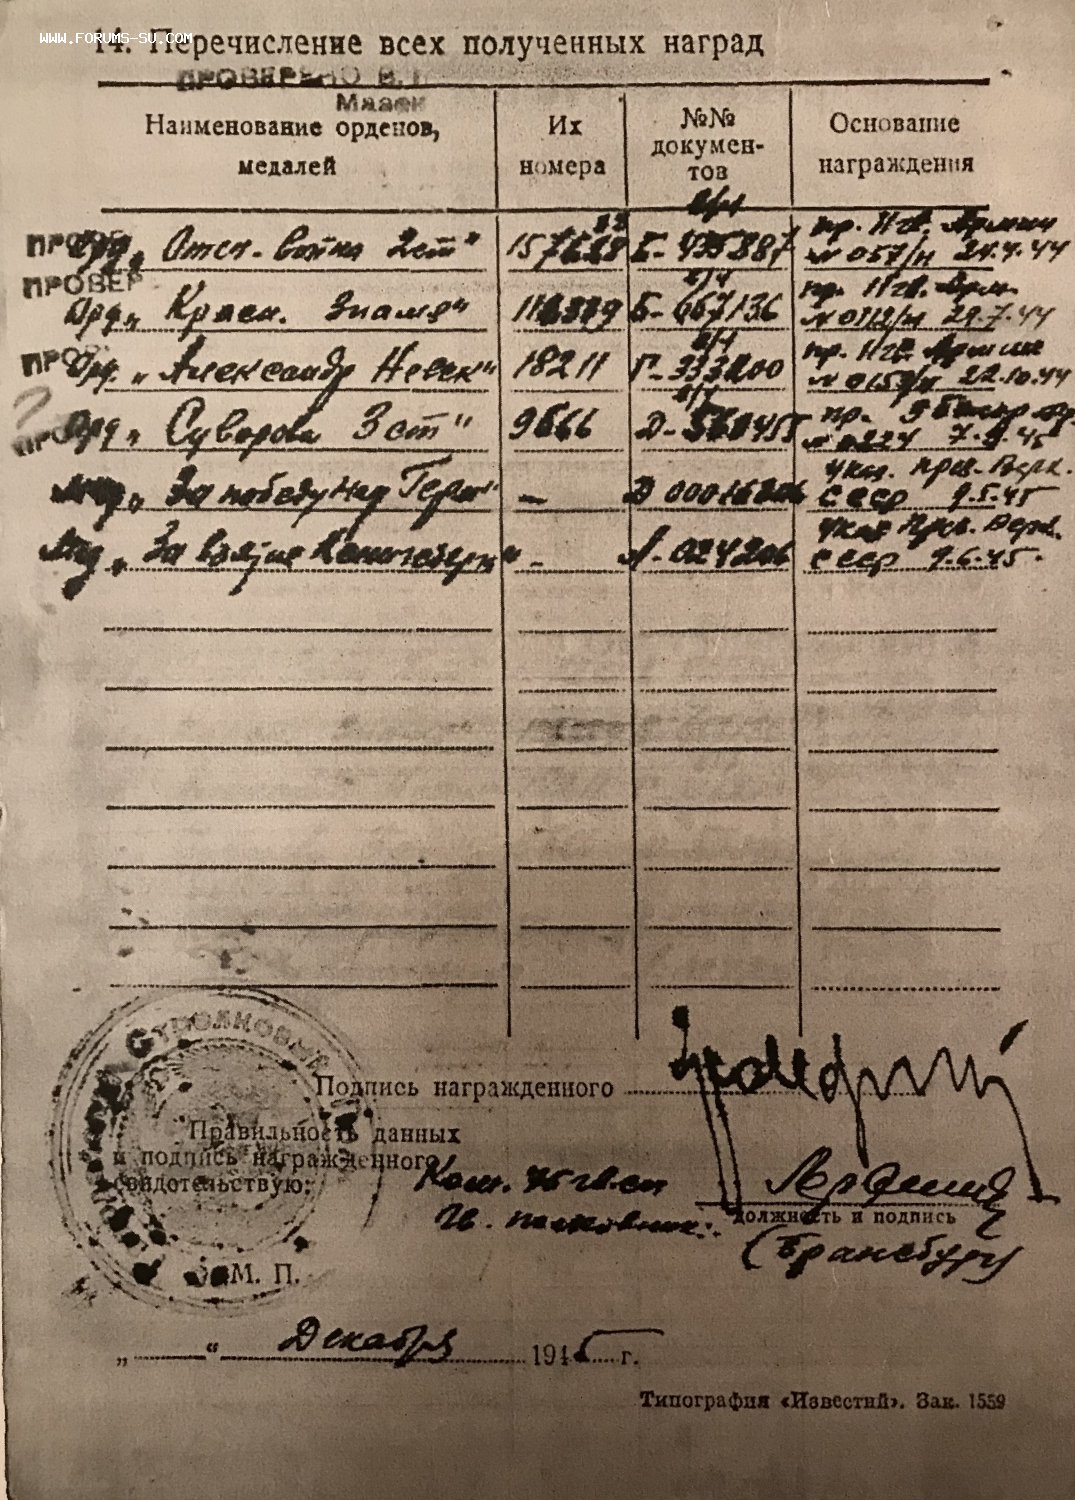 www.forums-su.com
14. Перечисление всех полученных наград
ПРОВЕРЕНО
Наименование орденов, медалей
Их номера
№№ документов
Основание награждения
ПРОВЕ Орд. „Отеч. война 2 ст" Б- пр. 11 гв. Армии
№ 057/н 21.4.44
ПРОВЕР Орд „Красн. Знамя" Б-667136 пр. 11 гв. Арм.
№ 0112/н 29.7.44
ПРОВ Орд. „Александр Невск" 18211 Г-333200 пр. 11 гв. Армии
22.10.44
ПРО Орд „Суворова 3 ст" 9666 Д- пр.
№ 0224 7.9.45
Мед „За победу над Герм" — Указ. През. Верх.
СССР 9.5.45
Мед „За взятие Кенигсберга" - А-024206 Указ През. Верх.
СССР 9.6.45.
Стрелковый
Подпись награжденного
Правильность данных
и подпись награжденного
свидетельствую:
Ком. 76 гв. сп
Гв. полковник:
должность и подпись
(Брансбург)
М. П.
„ “ Декабря 1945 г.
Типография «Известий». Зак. 1559